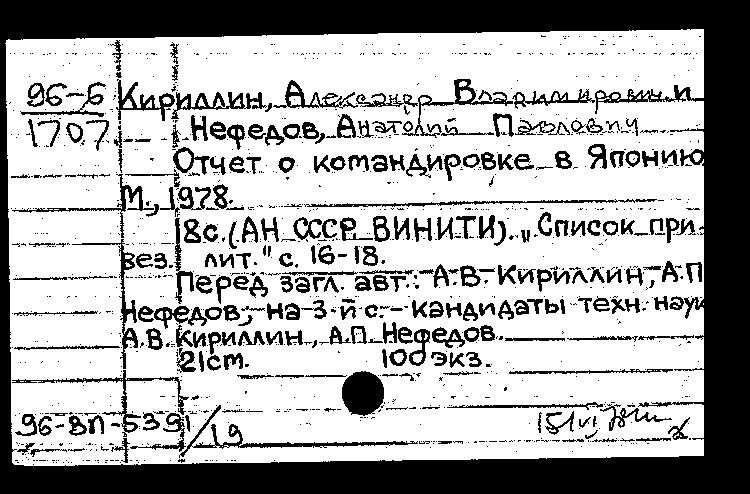 96-6 Кириллин, Александр Владимирович и
1707. Нефедов, Анатолий Павлович
Отчет о командировке в Японию
М., 1978.
18с. (АН СССР ВИНИТИ). „Список при-
вез. лит." с. 16-18.
Перед загл. авт.: А.В. Кириллин, А.П.
Нефедов; на 3-й с. - кандидаты техн. наук
А.В. Кириллин, А.П. Нефедов.
21см. 100 экз.
96-ВП-5391/19